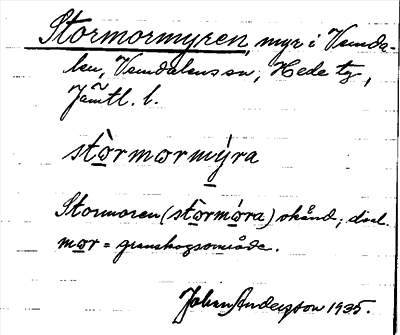 Stormormyren, myr i Vemda-
len, Vemdalens sn, Hede tg,
Jämtl. l.
stòrmormýra
Stormoren (stòrmòra) okänd; dial.
mor = granskogsområde.
Johan Anderzson 1935.